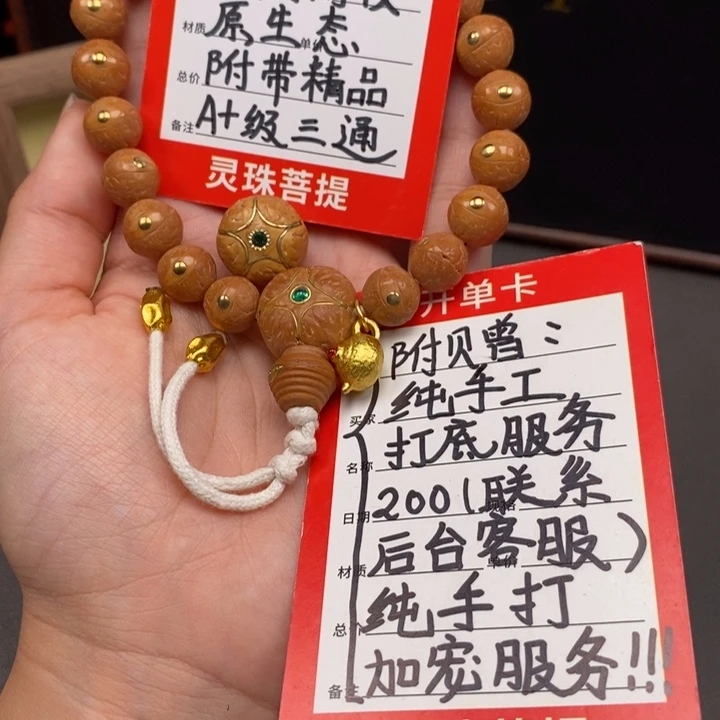 材质 原生态 单价
总价 附带精品
备注 A+级三通
灵珠菩提
开单卡
附贝曾：
买家 纯手工
名称 打底服务
日期 200(联系 规格
材质 后台客服) 单价
总价 纯手打
备注 加宏服务!!!